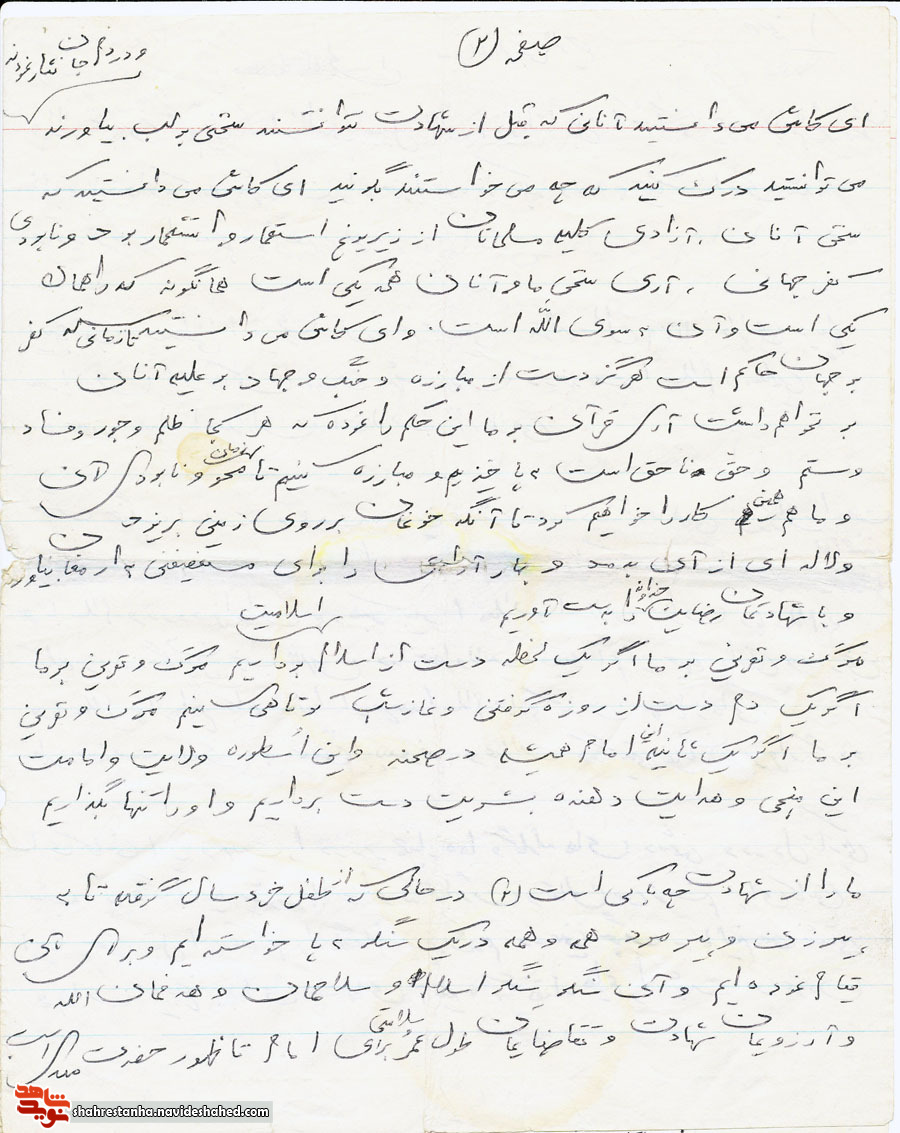 صفحه (۲)
و در دم جان نثار نمودند
ای کاش می دانستید آنانی که قبل از شهادت نتوانستند سخنی بر لب بیاورند
می توانستید درک کنید که چه می خواستند بگویند ای کاش می دانستید که
سخن آنان آزادی کلیه مسلمانان از زیر یوغ استعمار و استثمار بود و نابودی
کفر جهانی . آری سخن ما و آنان همه یکی است همانگونه که راهمان
یکی است و آن به سوی الله است . و ای کاش می دانستید تا زمانی که کفر
بر جهان حاکم است هرگز دست از مبارزه و جنگ و جهاد بر علیه آنان
بر نخواهم داشت آری قرآن بر ما این حکم را نموده که هر کجا ظلم و جور و فساد
و ستم و حق ناحق است به پا خیزیم و مبارزه کنیم تا محو و نابودی آن
و ما هم همین کار را خواهیم کرد تا آنگه خونمان بر روی زمین بریزد
و لاله ای از آن بدمد و بهار آزادی را برای مستضعفین به ارمغان بیاورد
و با شهادتمان رضایت خداوند را بدست آوریم
مرگ و نفرین بر ما اگر یک لحظه دست از اسلام اسلامیت برداریم مرگ و نفرین بر ما
اگر یک دم دست از روزه گرفتن و نماز شب کوتاهی کنیم مرگ و نفرین
بر ما اگر یک ثانیه این امام همیشه در صحنه و این اسطوره ولایت و امامت
این منجی و هدایت دهنده بشریت دست برداریم و او را تنها بگذاریم
ما را از شهادت چه باکی است (۲) در حالی که از طفل خردسال گرفته تا به
پیرزن و پیرمرد همه و همه در یک سنگر به پا خواسته ایم و برای آن
قیام نموده ایم و آن سنگر سنگر اسلام و سلاحمان و هدفمان الله
و آرزویمان شهادت و تقاضایمان طول عمر سلامتی برای امام تا ظهور حضرت مهدی است
شاهد نوید
shahrestanha.navideshahed.com